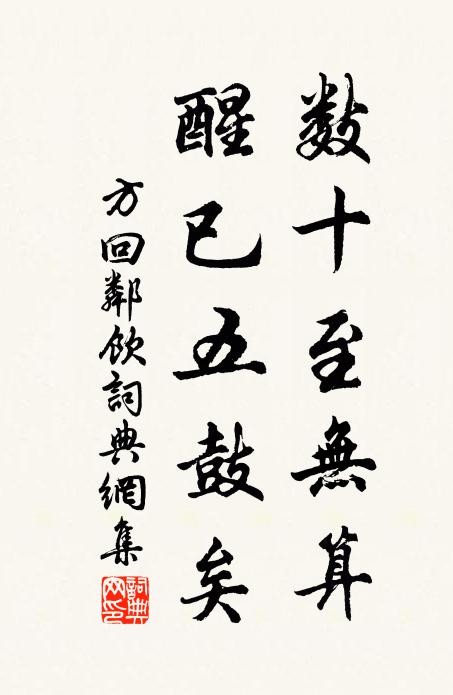 数十至無算
醒已五鼓矣
方回鄰飲詞典網集
詞典网印